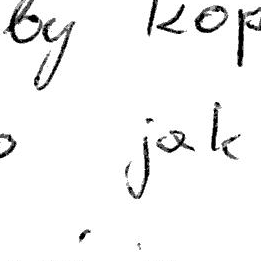 by kop
o jak